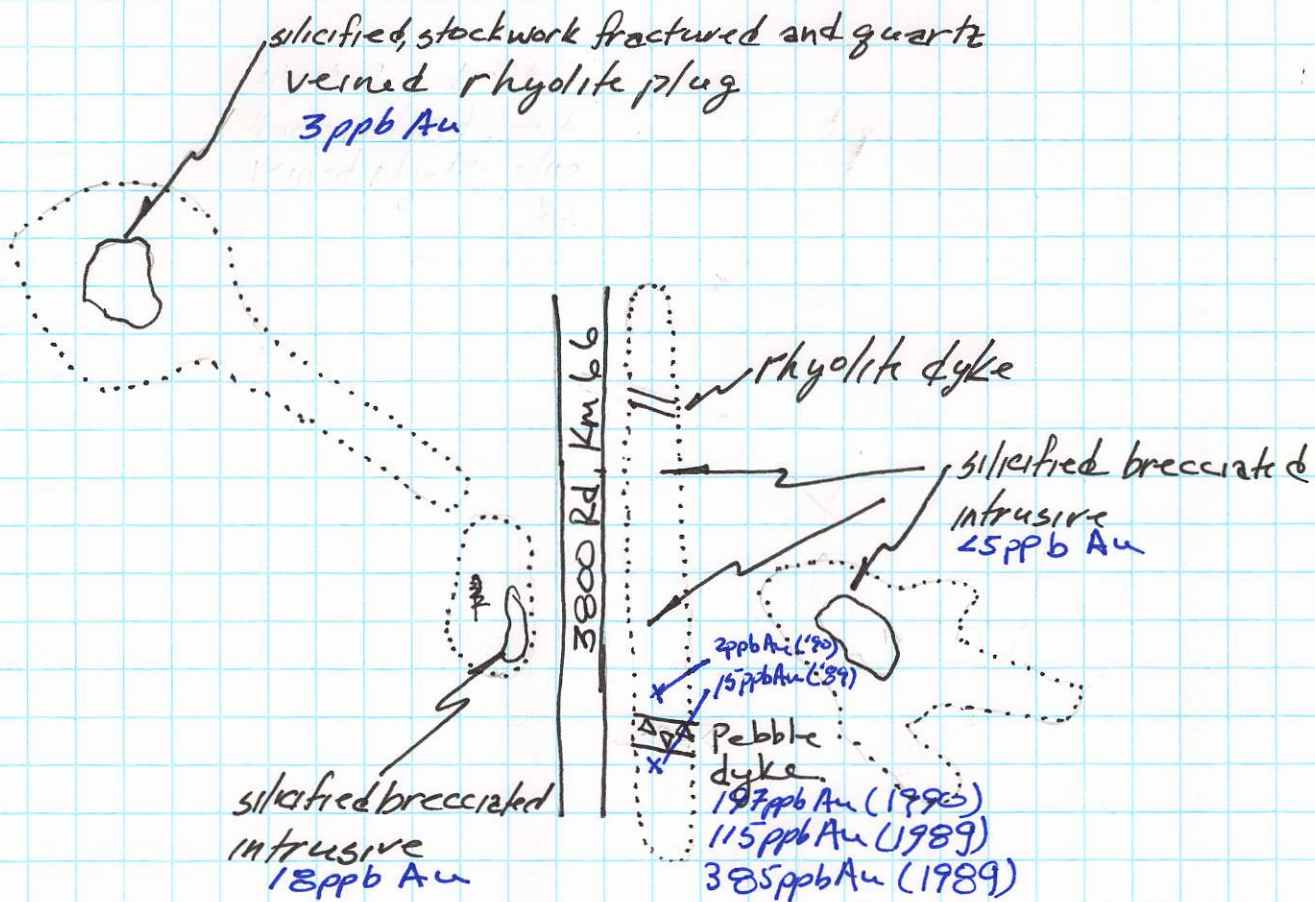 silicified, stockwork fractured and quartz
veined rhyolite plug
3ppb Au
3800 Rd, Km 66
rhyolite dyke
silicified brecciated
intrusive
<5ppb Au
2ppb Au ('90)
15ppb Au ('89)
Pebble
dyke.
197ppb Au (1990)
115ppb Au (1989)
385ppb Au (1989)
silicified brecciated
intrusive
18ppb Au